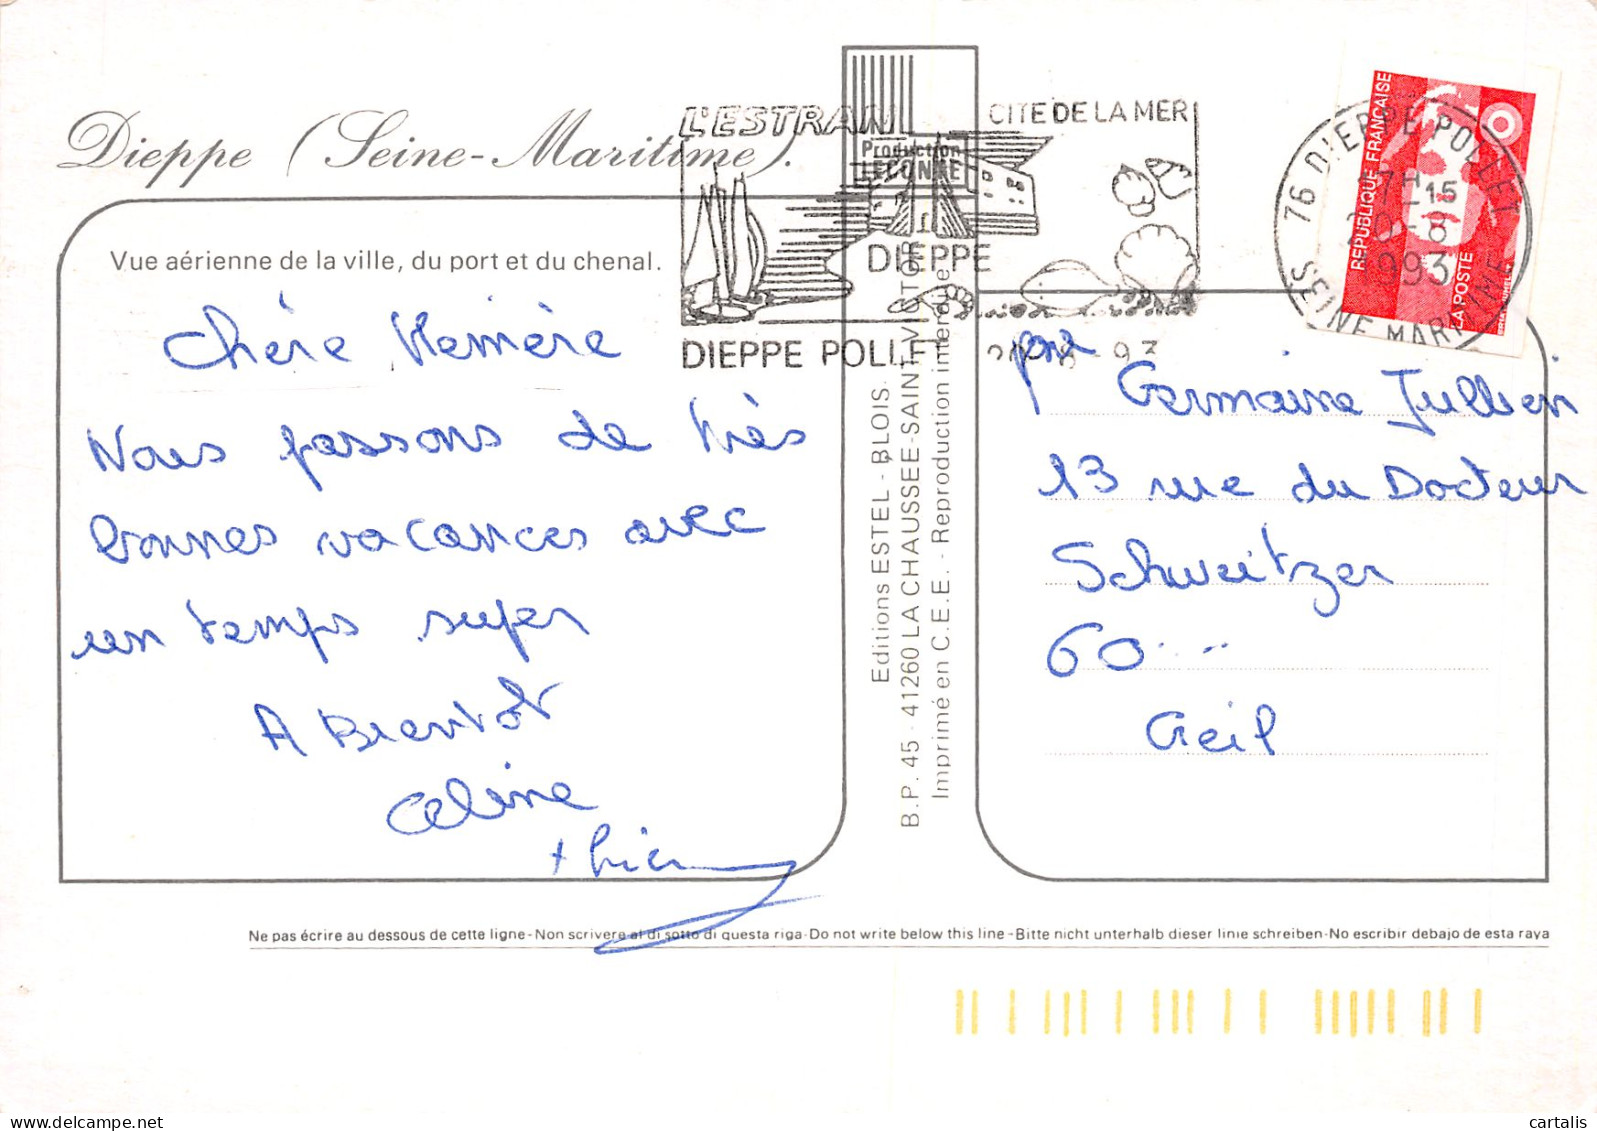 Dieppe (Seine-Maritime).
Vue aérienne de la ville, du port et du chenal.
Chère Mémère
Nous passons de très
bonnes vacances avec
un temps super
A Bientot
Celine
L'ESTRAN
CITE DE LA MER
Production
LECONTE
DIEPPE
DIEPPE POLLET
Editions ESTEL - BLOIS.
B.P. 45 - 41260 LA CHAUSSEE-SAINT-VICTOR
Imprimé en C.E.E. - Reproduction interdite
76 DIEPPE POLLET
17H15
1993
SEINE MARITIME
REPUBLIQUE FRANÇAISE
LA POSTE
Germaine Jullien
13 rue du Docteur
Schweitzer
60...
Creil
Ne pas écrire au dessous de cette ligne - Non scrivere al di sotto di questa riga - Do not write below this line - Bitte nicht unterhalb dieser linie schreiben - No escribir debajo de esta raya
cartalis